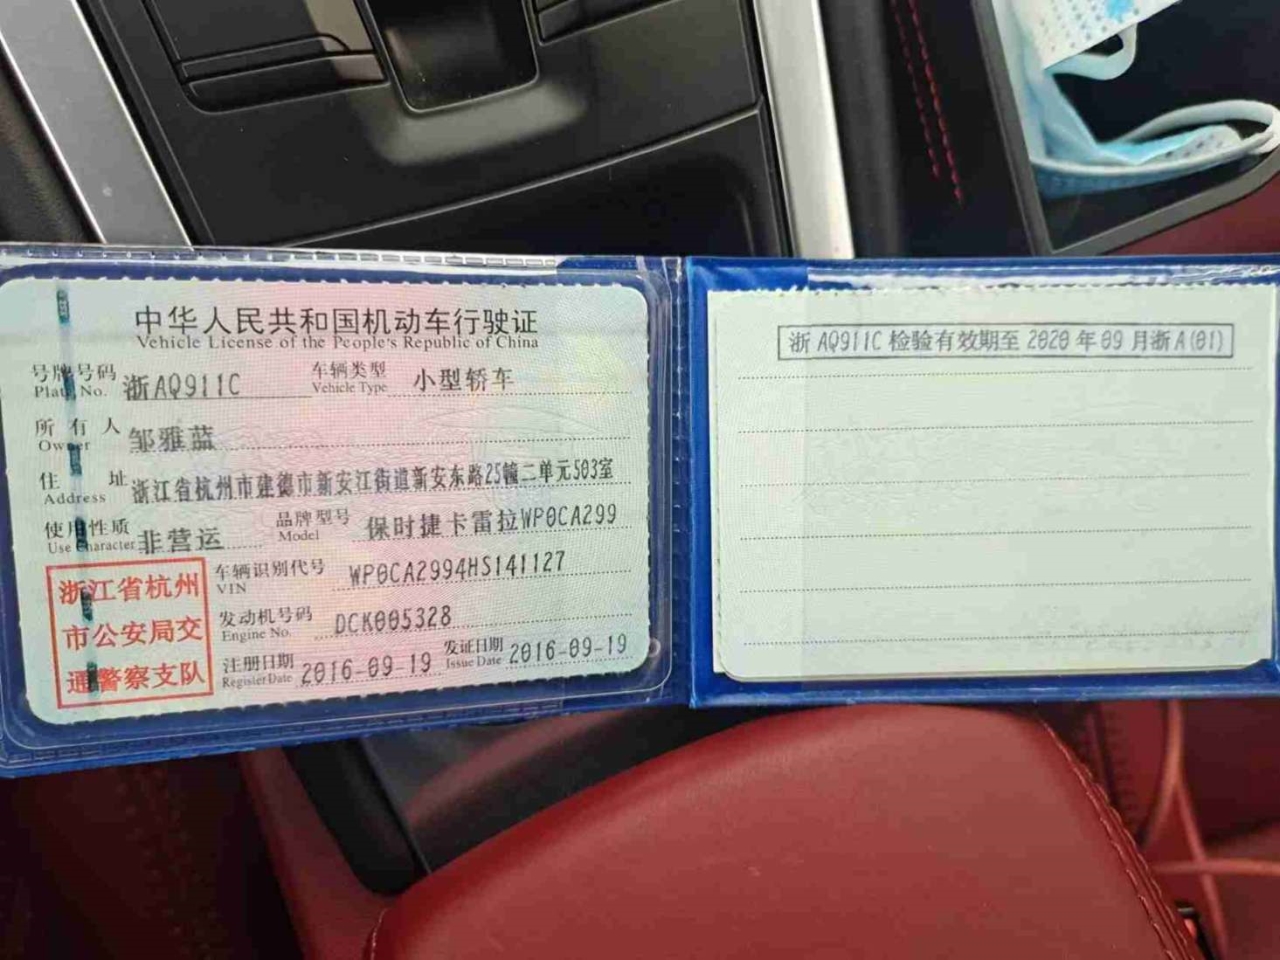 中华人民共和国机动车行驶证
Vehicle License of the People's Republic of China
号牌号码 浙AQ911C 车辆类型 小型轿车
Plate No. Vehicle Type
所有人 邹雅蓝
Owner
住址 浙江省杭州市建德市新安江街道新安东路25幢二单元503室
Address
使用性质 非营运 品牌型号 保时捷卡雷拉WP0CA299
Use Character Model
浙江省杭州
市公安局交
通警察支队
车辆识别代号 WP0CA2994HS141127
VIN
发动机号码 DCK005328
Engine No.
注册日期 2016-09-19 发证日期 2016-09-19
Register Date Issue Date
浙AQ911C检验有效期至2020年09月浙A(01)